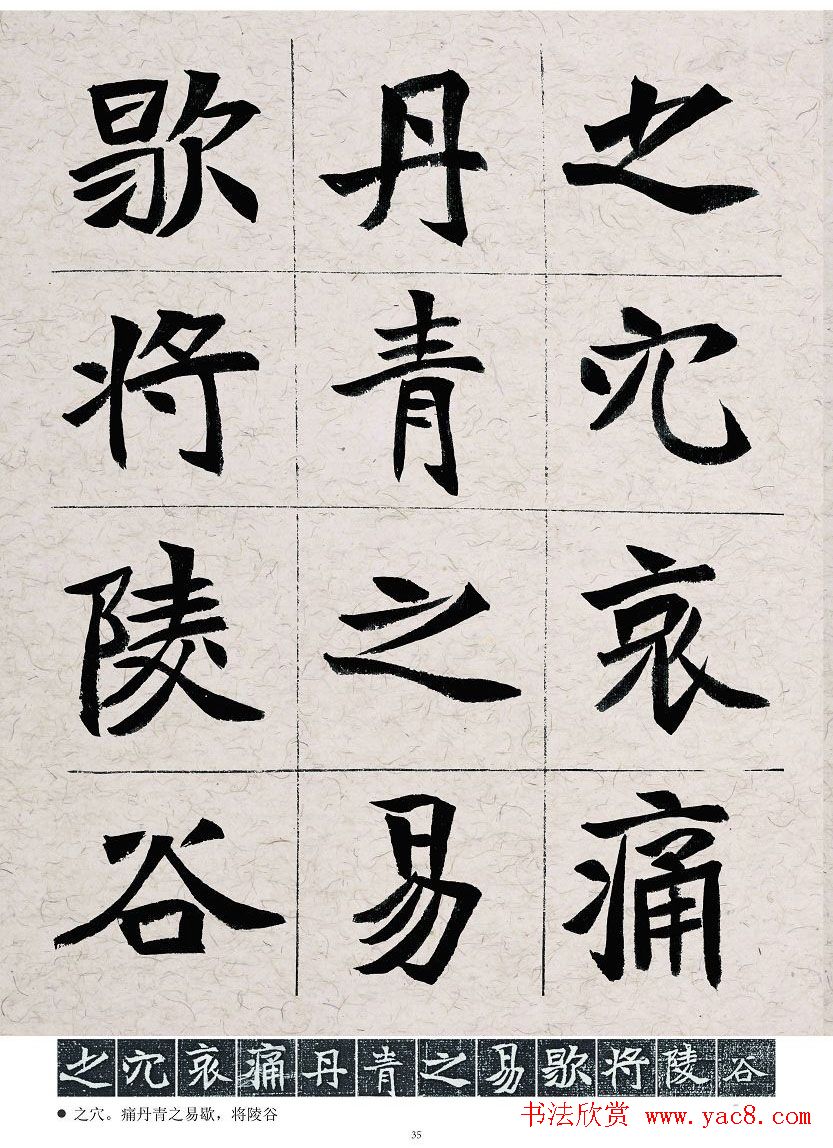 之穴哀痛
丹青之易
歇将陵谷
之穴哀痛丹青之易歇将陵谷
● 之穴。痛丹青之易歇，将陵谷
书法欣赏 www.yac8.com
35